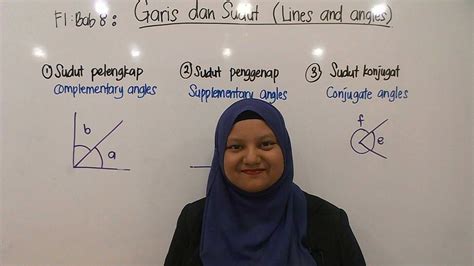 F1: Bab 8: Garis dan Sudut (Lines and angles)
① Sudut pelengkap
Complementary angles
② Sudut penggenap
Supplementary angles
③ Sudut konjugat
Conjugate angles
b
a
f
e